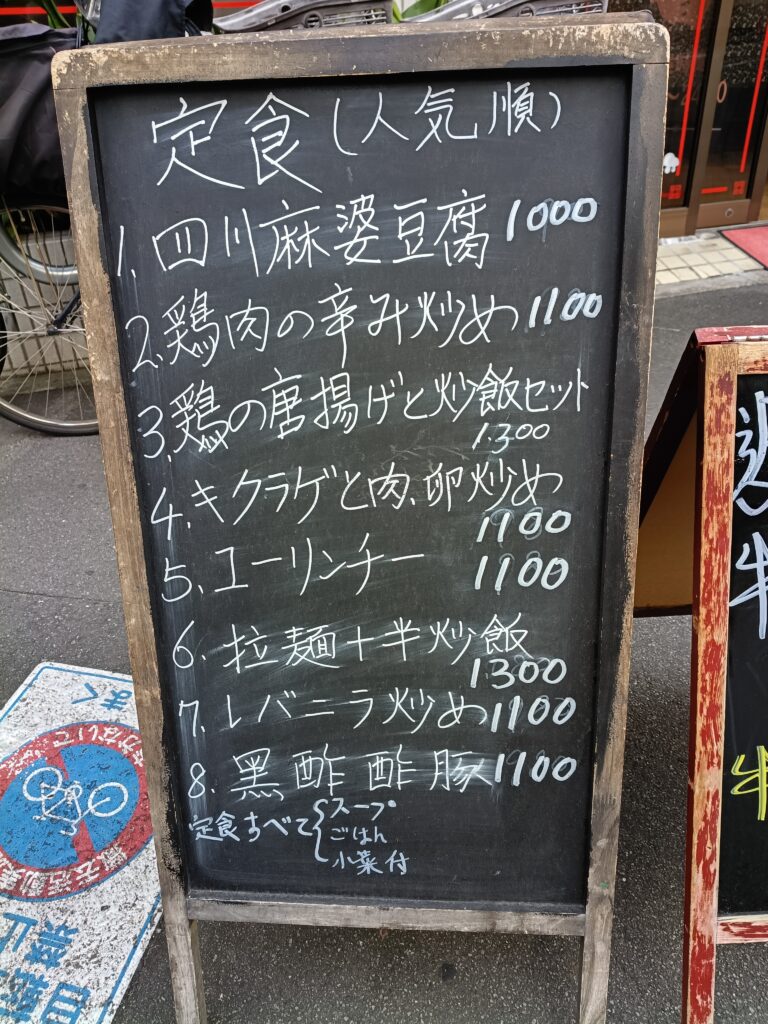 定食(人気順)
1.四川麻婆豆腐 1000
2.鶏肉の辛み炒め 1100
3.鶏の唐揚げと炒飯セット
1.300
4.キクラゲと肉、卵炒め
1100
5.ユーリンチー 1100
6.拉麺+半炒飯
1300
7.レバニラ炒め 1100
8.黒酢酢豚 1100
定食すべて{スープ
ごはん
小菜付